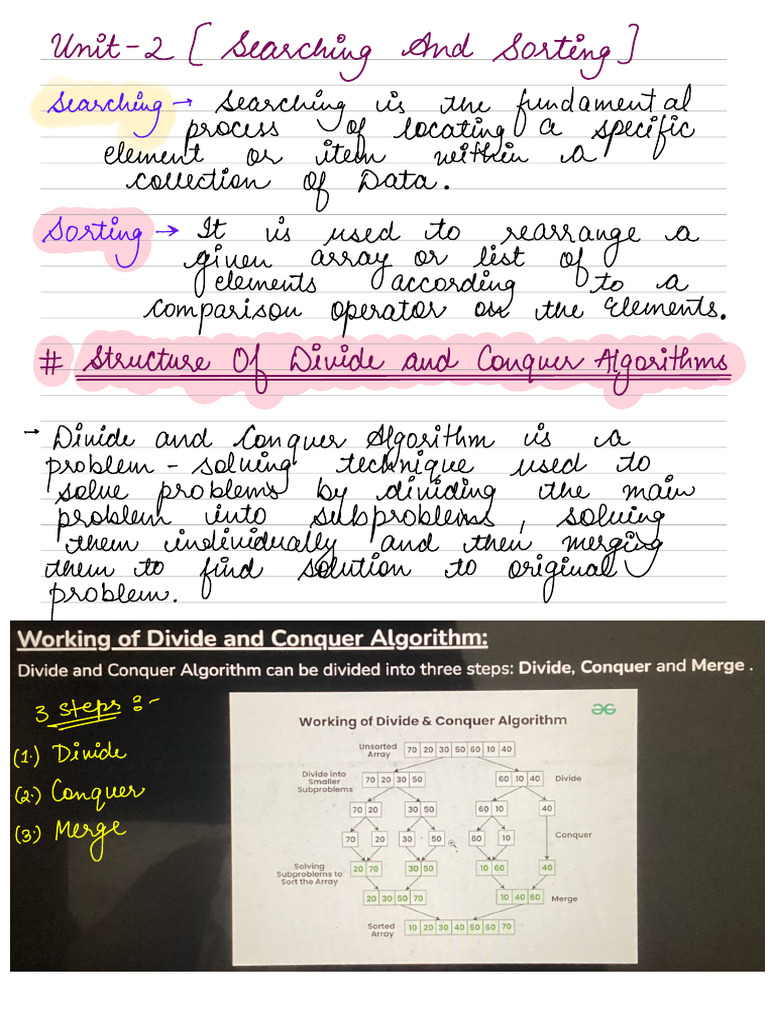 Unit-2 [ Searching And Sorting ]
Searching → Searching is the fundamental
process of locating a specific
element or item within a
collection of Data.
Sorting → It is used to rearrange a
given array or list of
elements according to a
comparison operator on the Elements.
# Structure Of Divide and Conquer Algorithms
→ Divide and Conquer Algorithm is a
problem - solving technique used to
solve problems by dividing the main
problem into subproblems, solving
them individually and then merging
them to find solution to original
problem.
Working of Divide and Conquer Algorithm:
Divide and Conquer Algorithm can be divided into three steps: Divide, Conquer and Merge .
3 Steps :-
(1.) Divide
(2.) Conquer
(3.) Merge
Working of Divide & Conquer Algorithm
Unsorted
Array
70 20 30 50 60 10 40
Divide into
Smaller
Subproblems
70 20 30 50
60 10 40
Divide
70 20
30 50
60 10
40
70
20
30
50
60
10
Conquer
Solving
Subproblems to
Sort the Array
20 70
30 50
10 60
40
20 30 50 70
10 40 60
Merge
Sorted
Array
10 20 30 40 50 60 70